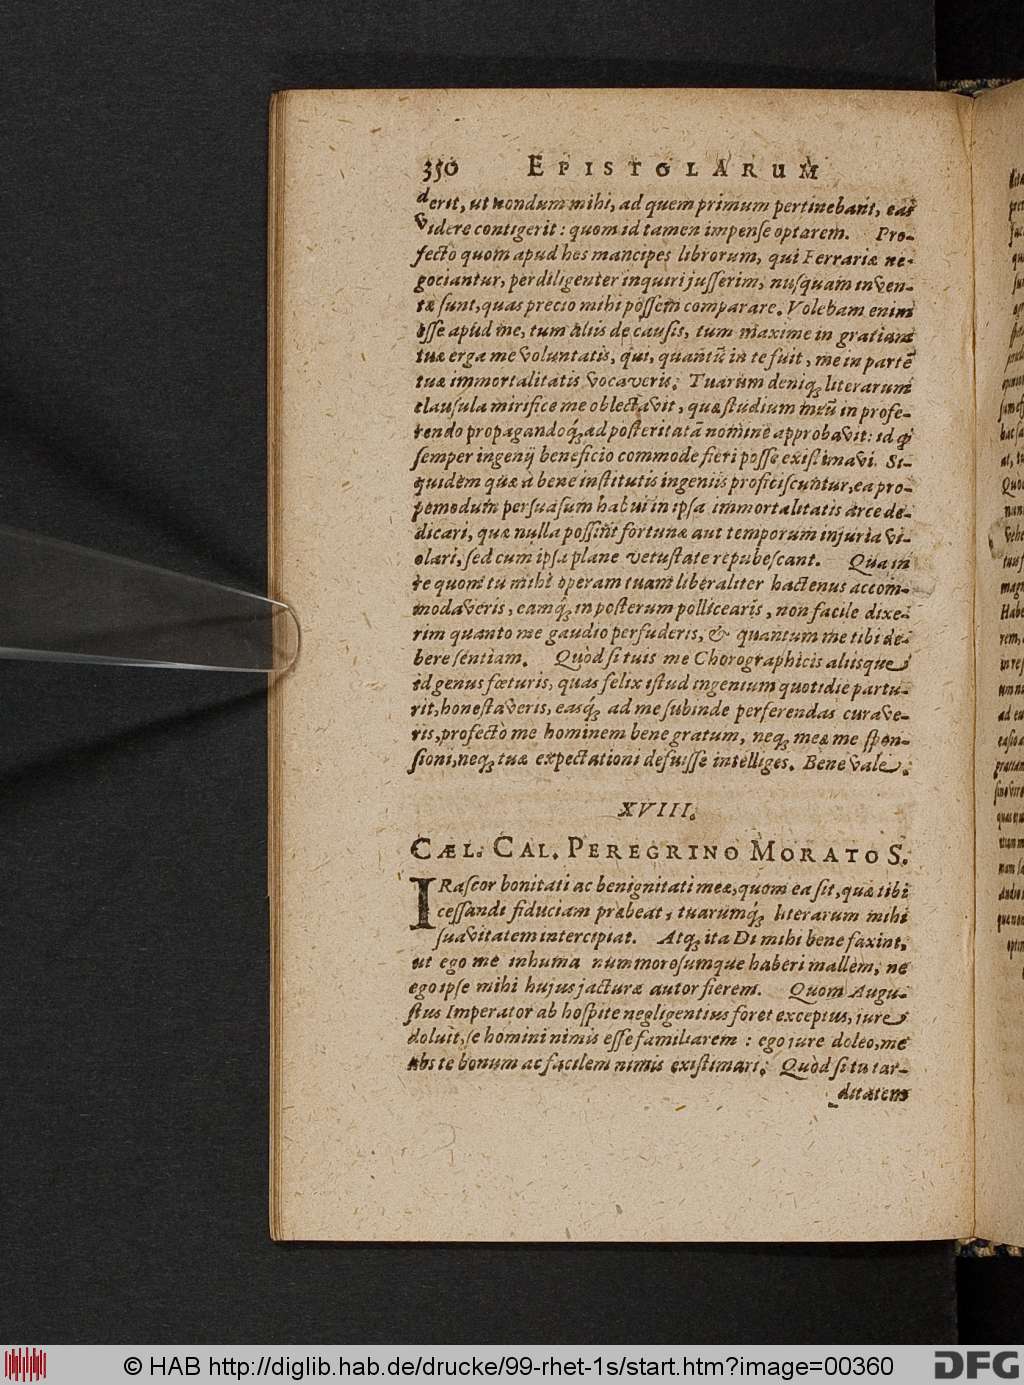 350 EPISTOLARUM
derit, ut nondum mihi, ad quem primum pertinebant, eas
videre contigerit: quom id tamen impense optarem. Pro-
fecto quom apud hes mancipes librorum, qui Ferrariæ ne-
gociantur, perdiligenter inquiri jusserim, nusquam inven-
tæ sunt, quas precio mihi possem comparare. Volebam enim
esse apud me, tum aliis de causis, tum maxime in gratiam
tuæ erga me voluntatis, qui, quantũ in te fuit, me in partẽ
tuæ immortalitatis vocaveris. Tuarum deniq; literarum
clausula mirifice me oblectavit, quæ studium meũ in profe-
rendo propagandoq́; ad posteritatã nomine approbavit: id qđ
semper ingenij beneficio commode fieri posse existimavi. Si-
quidem quæ à bene institutis ingeniis proficiscuntur, ea pro-
pemodum persuasum habui in ipsa immortalitatis arce de-
dicari, quæ nulla possint fortunæ aut temporum injuria vi-
olari, sed cum ipsa plane vetustate repubescant. Qua in
re quom tu mihi operam tuam liberaliter hactenus accom-
modaveris, eamq́; in posterum pollicearis, non facile dixe-
rim quanto me gaudio perfuderis, & quantum me tibi de-
bere sentiam. Quòd si tuis me Chorographicis aliisque
id genus fœturis, quas felix istud ingenium quotidie partu-
rit, honestaveris, easq́; ad me subinde perferendas curave-
ris, profectò me hominem bene gratum, neq; meæ me spon-
sioni, neq; tuæ expectationi defuisse intelliges. Bene vale.
XVIII.
CÆL. CAL. PEREGRINO MORATO S.
IRascor bonitati ac benignitati meæ, quom ea sit, quæ tibi
cessandi fiduciam præbeat, tuarumq́; literarum mihi
suavitatem intercipiat. Atq; ita Di mihi bene faxint,
ut ego me inhuma nummorosumque haberi mallem, ne
ego ipse mihi hujus jacturæ autor fierem. Quom Augu-
stus Imperator ab hospite negligentius foret exceptus, jure
doluit, se homini nimis esse familiarem: ego jure doleo, me
abs te bonum ac facilem nimis existimari. Quòd si tu tar-
ditatem
© HAB http://diglib.hab.de/drucke/99-rhet-1s/start.htm?image=00360 DFG